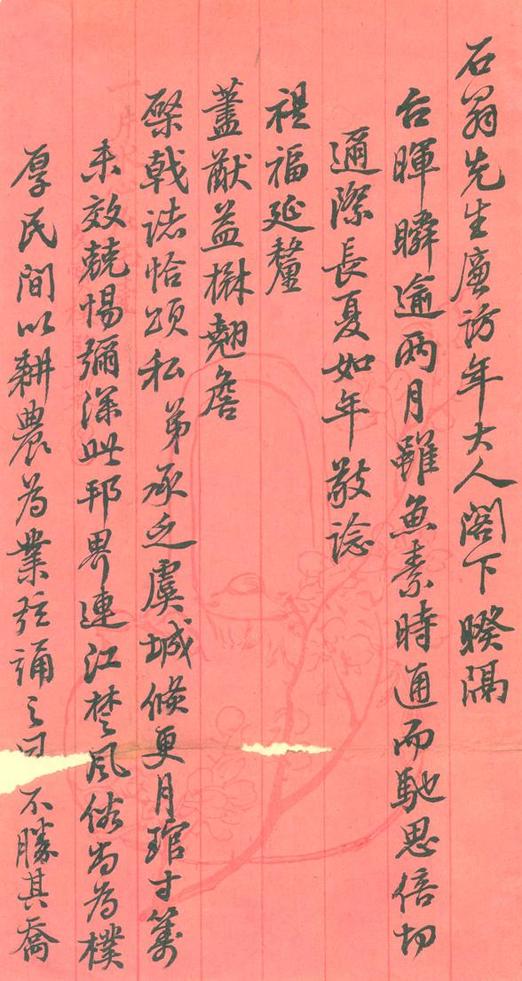 石翁先生廉訪年大人閣下暌隔
台暉瞬逾兩月雖魚素時通而馳思倍切
邇際長夏如年敬諗
禔福延釐
藎猷益楙翹詹
棨戟誌恰頌私弟承乏虞城倏更月琯寸籌
未效兢惕彌深此邦界連江楚風俗尚為樸
厚民間以耕農為業弦誦之 不勝其喬